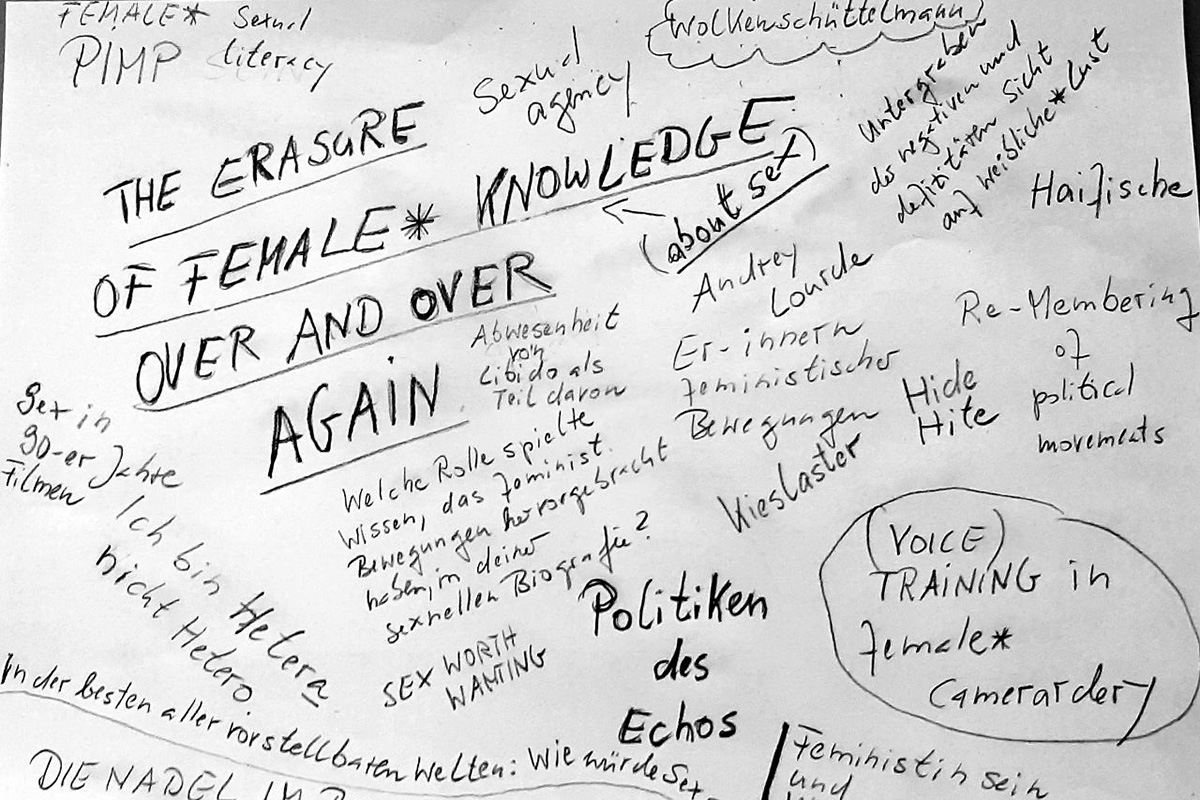 FEMALE* sexual
PIMP literacy
Sexual
agency
Wolkenschüttelmann
Untergraben
des negativen und
defizitären Sicht
auf weibliche* Lust
THE ERASURE
OF FEMALE* KNOWLEDGE
(about sex)
OVER AND OVER
AGAIN
Haifische
Audrey
Lourde
Abwesenheit
von
Libido als
Teil davon
Er-innern
feministischer
Bewegungen
Re-Membering
of
political
movements
Hide
Hite
Kieslaster
Sex in
90-er Jahre
Filmen
Welche Rolle spielte
Wissen, das feminist.
Bewegungen hervorgebracht
haben, in deiner
sexuellen Biografie?
Ich bin Hetera
nicht Hetero
(VOICE)
TRAINING in
female*
Camerardery
Politiken
des
Echos
SEX WORTH
WANTING
In der besten aller vorstellbaren Welten: Wie würde Sex
Feministin sein
und
DIE NADEL IM